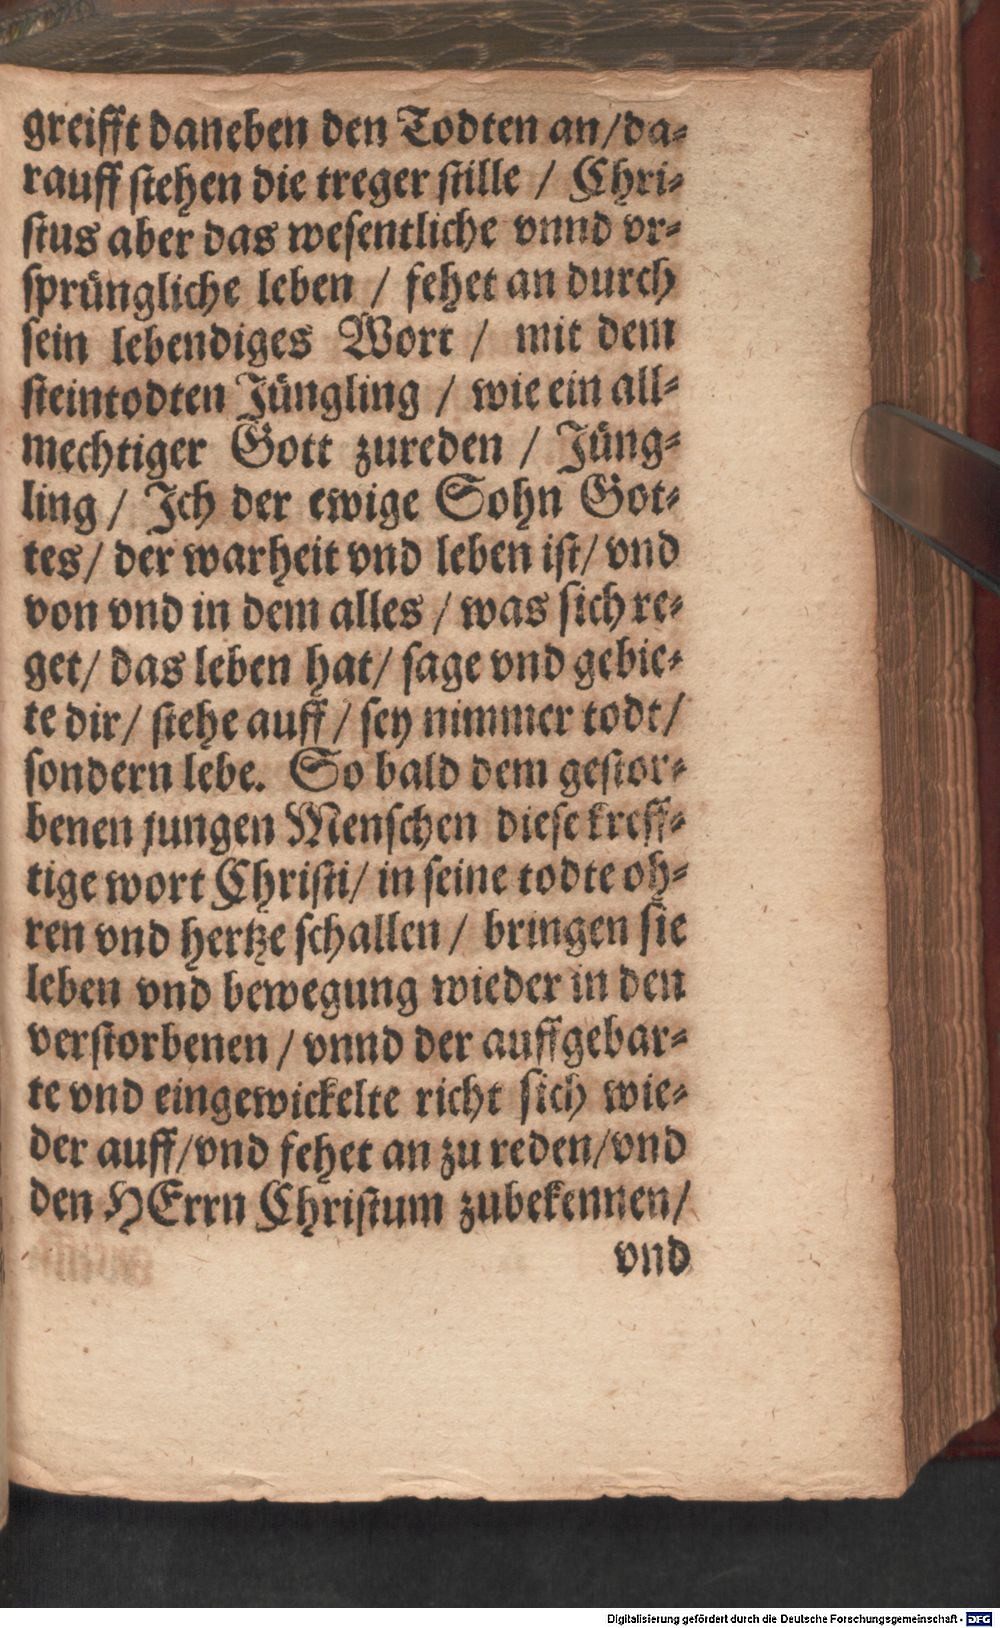 greifft daneben den Todten an/da⸗
rauff stehen die treger stille / Chri⸗
stus aber das wesentliche vnnd vr⸗
sprüngliche leben / fehet an durch
sein lebendiges Wort / mit dem
steintodten Jüngling / wie ein all⸗
mechtiger Gott zureden / Jüng⸗
ling / Ich der ewige Sohn Got⸗
tes/ der warheit vnd leben ist/ vnd
von vnd in dem alles / was sich re⸗
get/ das leben hat/ sage vnd gebie⸗
te dir/ stehe auff / sey nimmer todt/
sondern lebe. So bald dem gestor⸗
benen jungen Menschen diese kreff⸗
tige wort Christi/ in seine todte oh⸗
ren vnd hertze schallen / bringen sie
leben vnd bewegung wieder in den
verstorbenen / vnnd der auffgebar⸗
te vnd eingewickelte richt sich wie⸗
der auff/vnd fehet an zu reden/vnd
den HErrn Christum zubekennen/
vnd
Digitalisierung gefördert durch die Deutsche Forschungsgemeinschaft - DFG